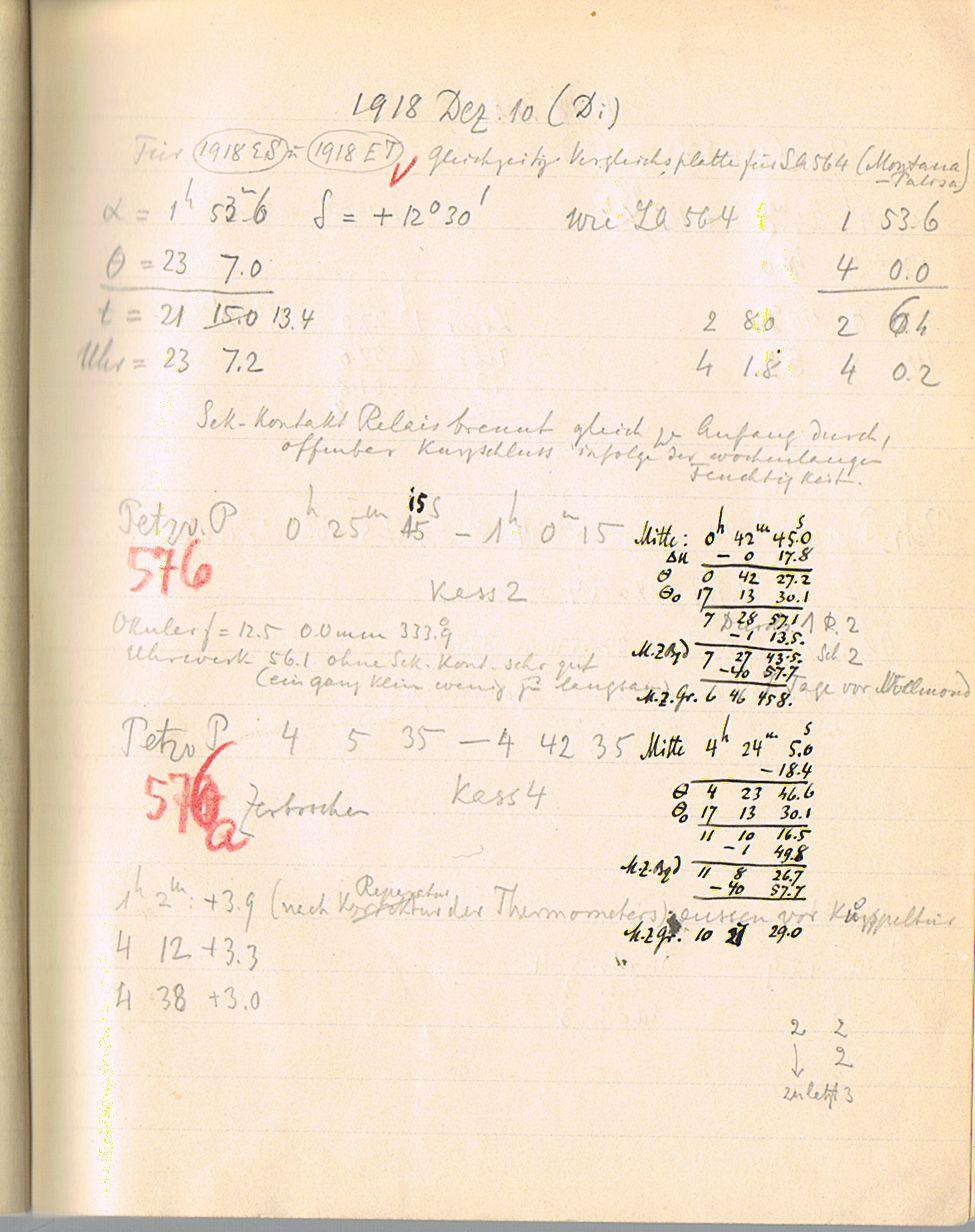 1918 Dez. 10 (Di)
Für 1918 ES = 1918 ET gleichzeitig Vergleichsplatte für Sa 564 (Montana
-Palisa)
α = 1h 53m6 δ = + 12°30' wie Sa 564 1 53.6
θ = 23 7.0 4 0.0
t = 21 15.0 13.4 2 8.0 2 6.4
Uhr = 23 7.2 4 1.8 4 0.2
Sek-Kontakt Relais brennt gleich zu Anfang durch,
offenbar Kurzschluss infolge der wochenlangen
Feuchtigkeit.
Petzv. P 0h 25m 15s – 1h 0m 15
576
Kass 2
Okular f = 12.5 0.0mm 333.9
Uhrwerk 56.1 ohne Sek. Kont. sehr gut
(ein ganz klein wenig zu langsam)
Mitte: 0h 42m 45.0s
Δu – 0 17.8
θ 0 42 27.2
θo 17 13 30.1
7 28 57.1
-1 13.5.
M.Z.Bgd 7 27 43.5.
-40 57.7
M.Z.Gr. 6 46 45.8.
1 R. 2
Sch 2
Tage vor Vollmond
Petzv P 4 5 35 – 4 42 35
576a Zerbrochen
Kass 4
Mitte 4h 24m 5.0s
-18.4
θ 4 23 46.6
θo 17 13 30.1
11 10 16.5
-1 49.8
M.Z.Bgd 11 8 26.7
-40 57.7
M.Z.Gr. 10 27 29.0
1h 2m: +3.9 (nach Reparatur der Thermometers) aussen vor Kuppeltür
4 12 +3.3
4 38 +3.0
2 2
↓ 2
zuletzt 3